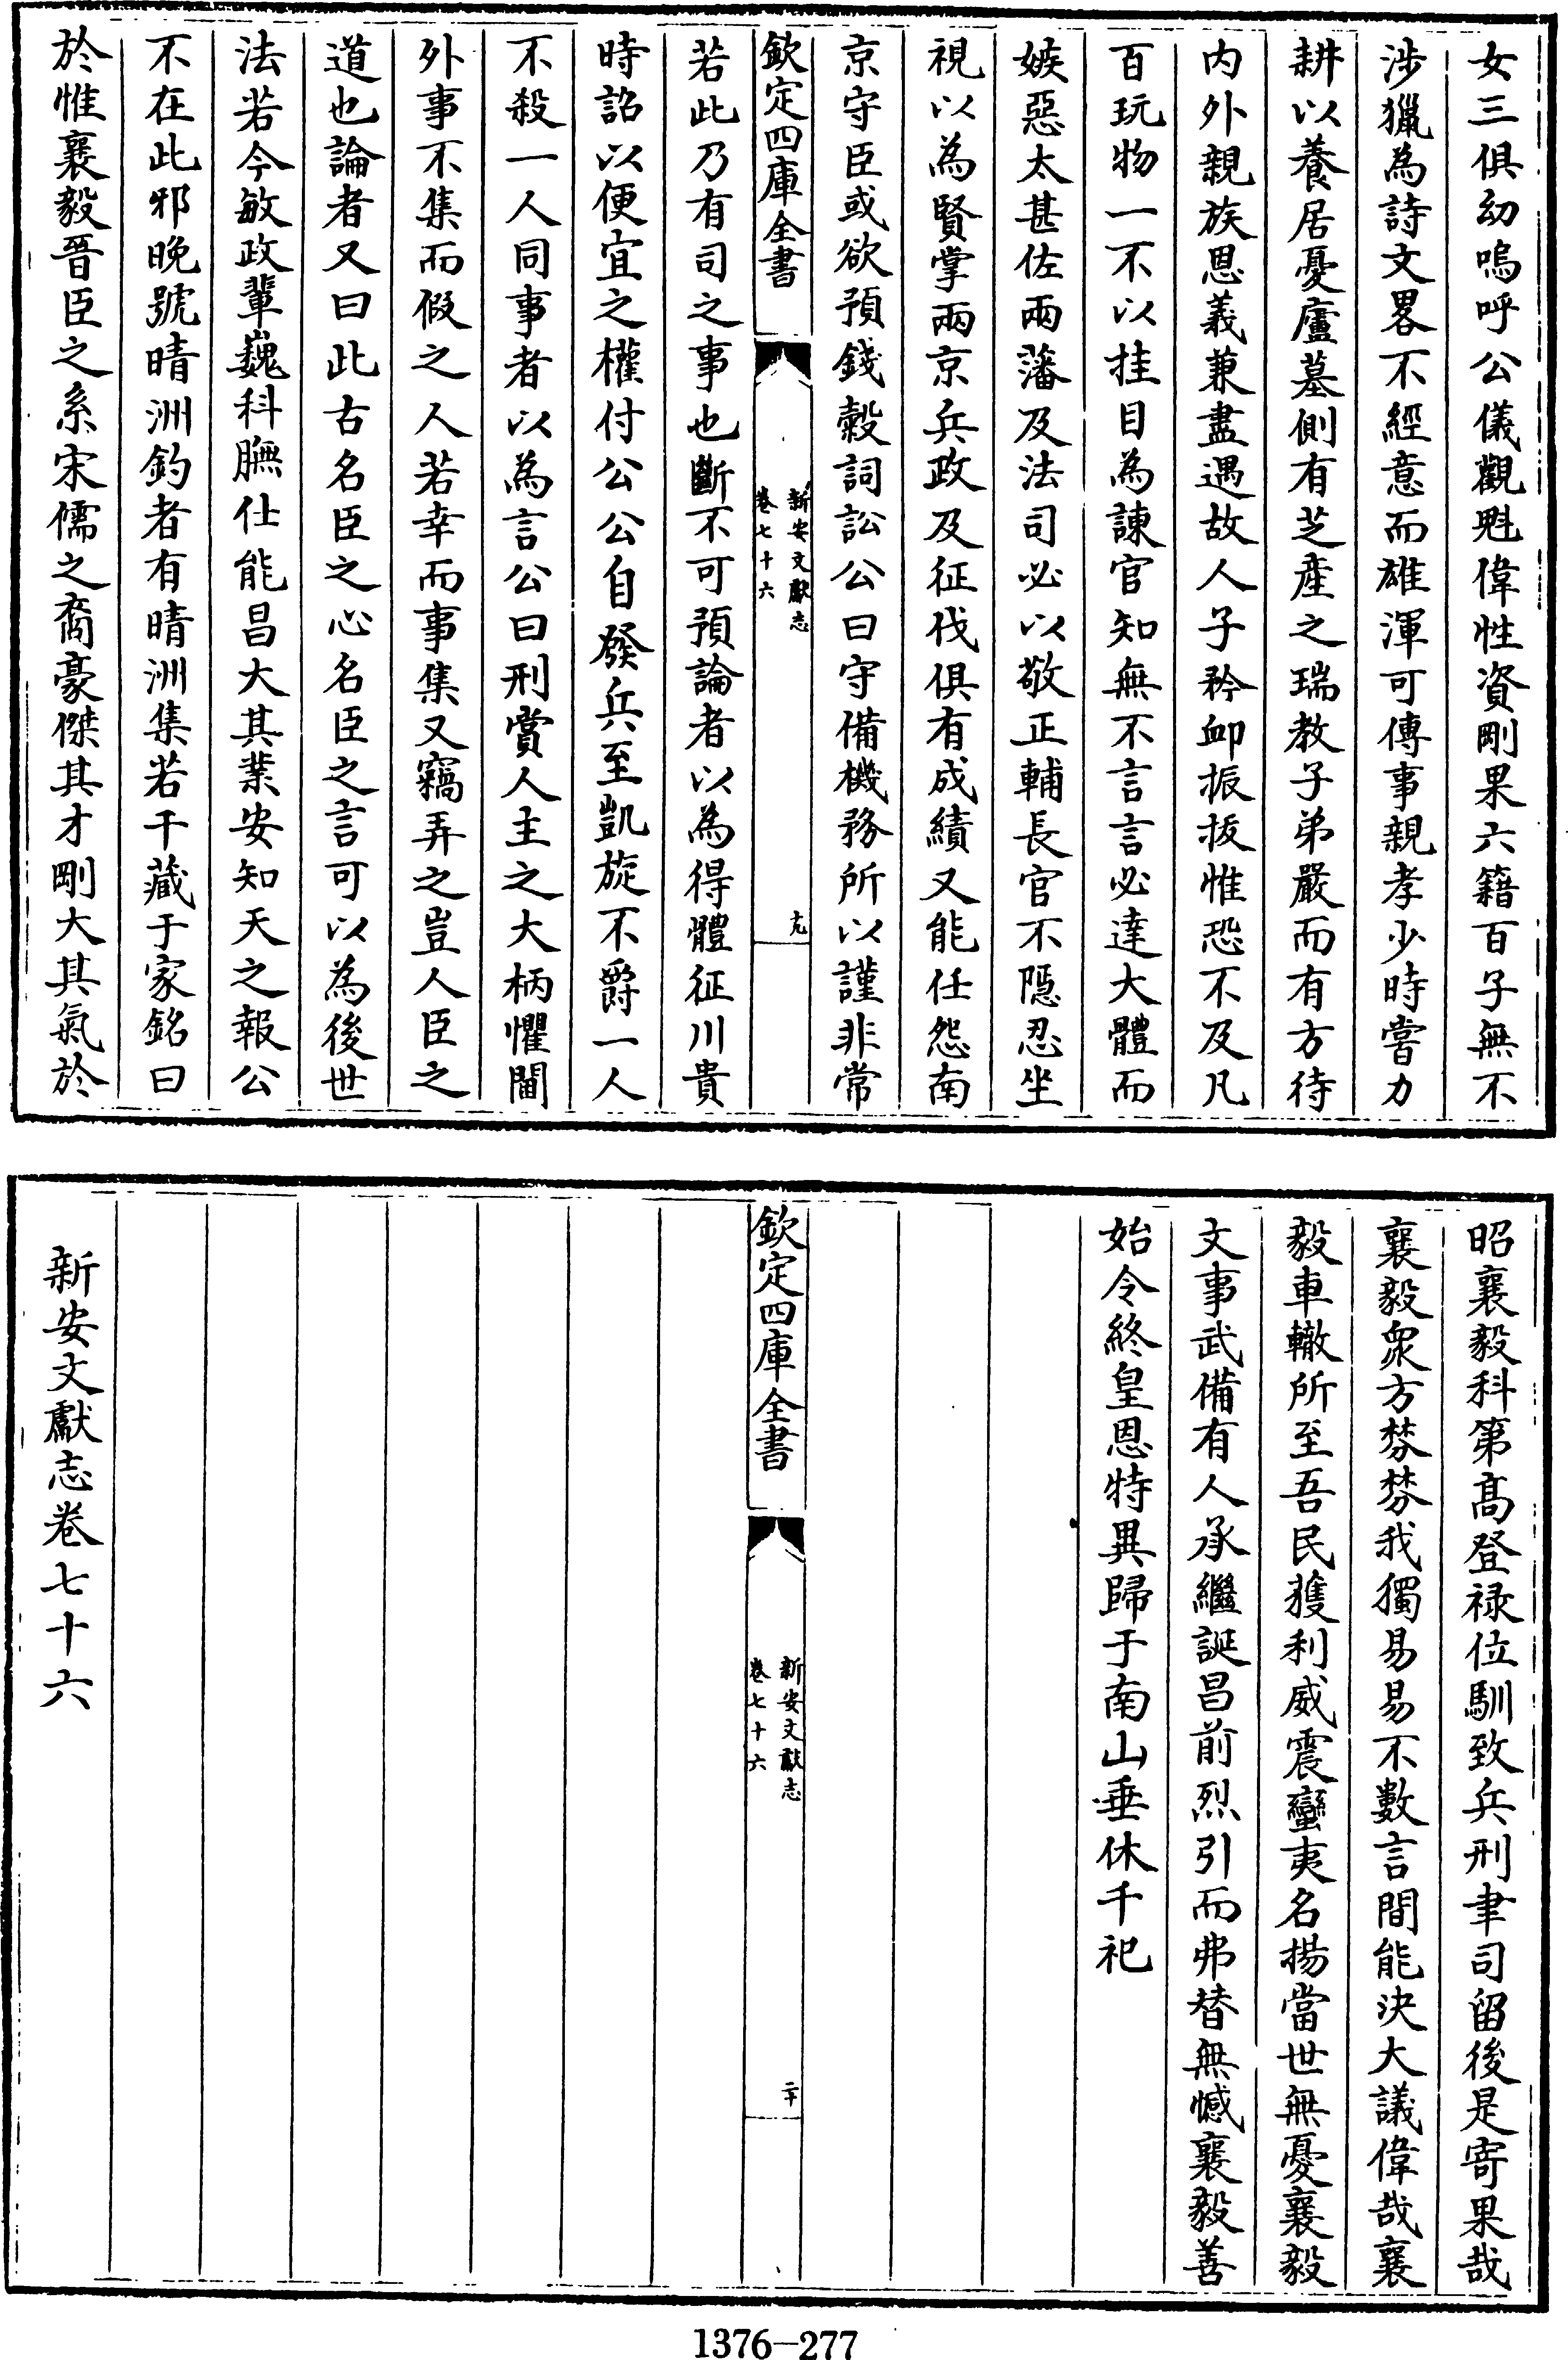 女三俱幼嗚呼公儀觀魁偉性資剛果六籍百子無不
涉獵為詩文畧不經意而雄渾可傳事親孝少時嘗力
耕以養居憂廬墓側有芝產之瑞教子弟嚴而有方待
内外親族恩義兼盡遇故人子矜䘏振拔惟恐不及凡
百玩物一不以挂目為諫官知無不言言必達大體而
嫉惡太甚佐兩藩及法司必以敬正輔長官不隱忍坐
視以為賢掌兩京兵政及征伐俱有成績又能任怨南
京守臣或欲預錢糓詞訟公曰守備機務所以謹非常
欽定四庫全書
新安文獻志
卷七十六
十九
若此乃有司之事也斷不可預論者以為得體征川貴
時詔以便宜之權付公公自發兵至凱旋不爵一人
不殺一人同事者以為言公曰刑賞人主之大柄懼閫
外事不集而假之人若幸而事集又竊弄之豈人臣之
道也論者又曰此古名臣之心名臣之言可以為後世
法若今敏政輩巍科膴仕能昌大其業安知天之報公
不在此邪晚號晴洲釣者有晴洲集若干藏于家銘曰
於惟襄毅晉臣之系宋儒之裔豪傑其才剛大其氣於
昭襄毅科第高登禄位馴致兵刑聿司留後是寄果哉
襄毅衆方棼棼我獨易易不數言間能決大議偉哉襄
毅車轍所至吾民獲利威震蠻夷名揚當世無憂襄毅
文事武備有人承繼誕昌前烈引而弗替無憾襄毅善
始令終皇恩特異歸于南山垂休千祀
欽定四庫全書
新安文獻志
卷七十六
二十
新安文獻志卷七十六
1376-277